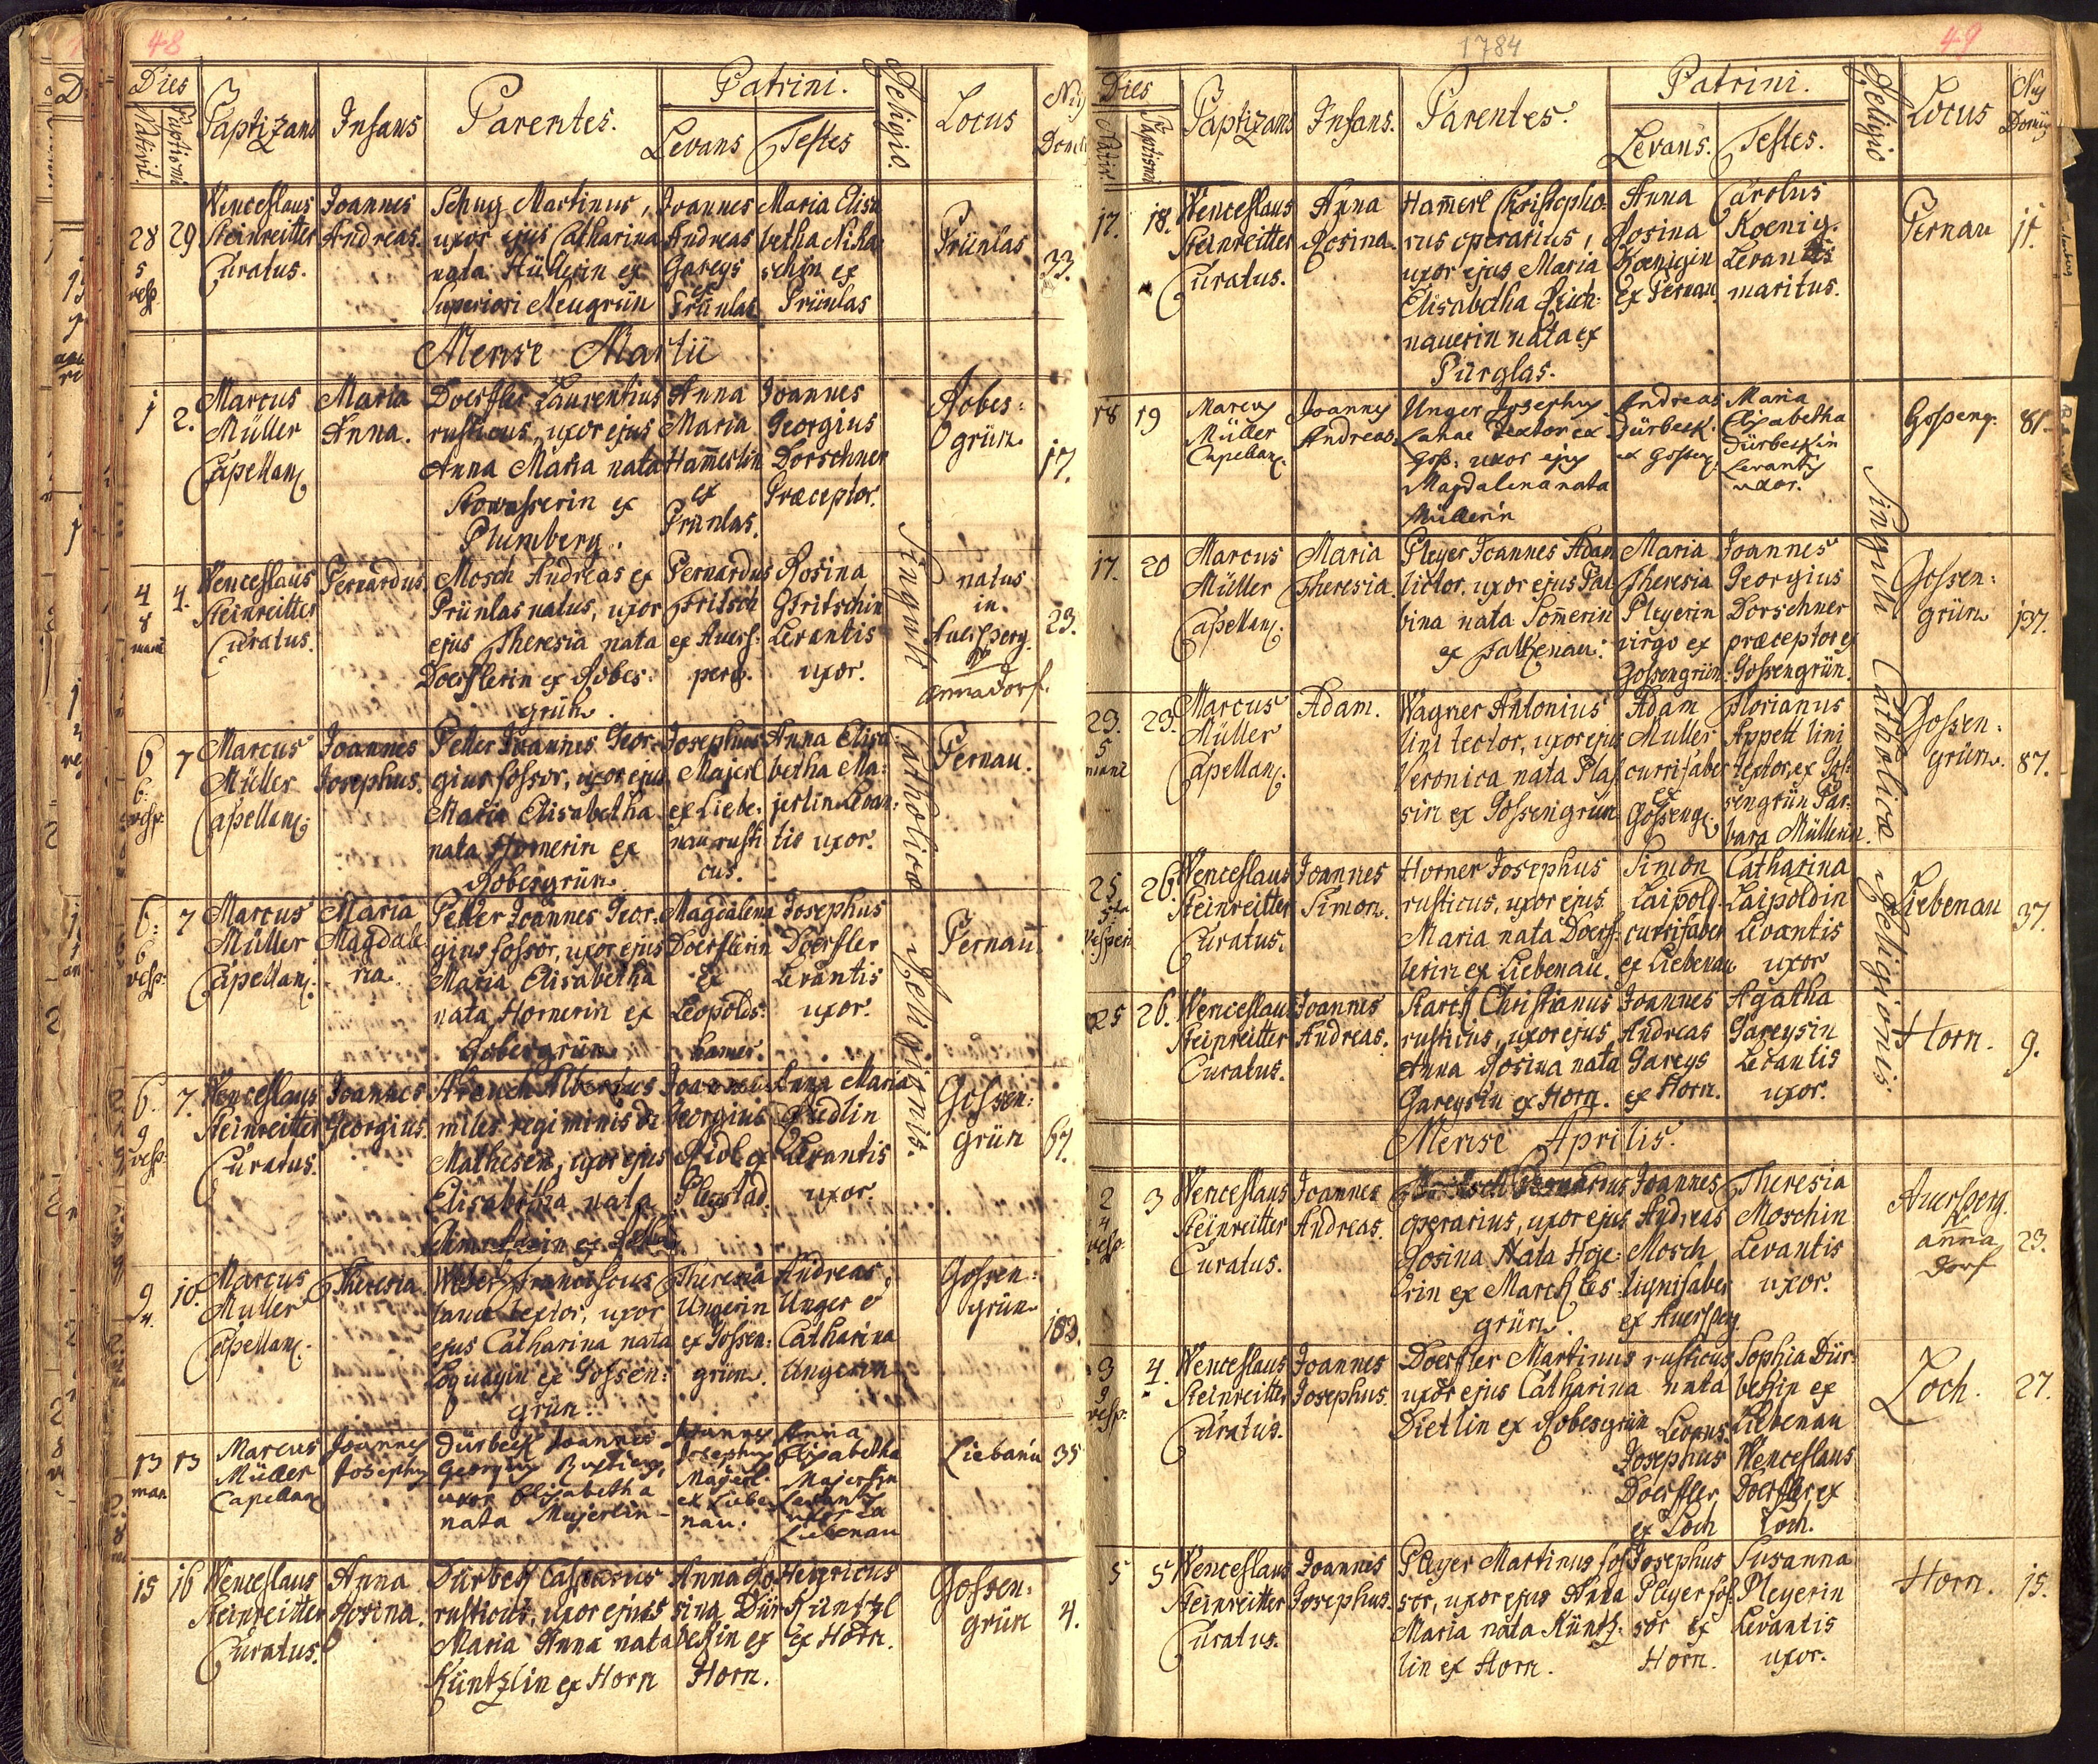 48
Dies
Nativit
Baptismi
Baptizans
Infans
Parentes.
Patrini.
Levans
Testes
Religio.
Locus
Nrus
Domus
28
5
vesp
29
Wenceslaus
Steinreitter
Curatus.
Joannes
Andreas.
Schug Martinus,
uxor ejus Catharina
nata Hüllerin ex
Superiori Neugrün
Joannes
Andreas
Gareys
ex
Prünlas
Maria Elisa
betha
ex
Prünlas
Prünlas
33.
Mense Martii
1
2.
Marcus
Müller
Capellanus
Maria
Anna.
Doerfler Laurentius
rusticus, uxor ejus
Anna Maria nata
Stowasserin ex
Plumberg.
Anna
Maria
Ham̄erlin
ex
Prünlas.
Joannes
Georgius
Dorschner
Præceptor.
Robes:
grün
17.
4
8
mane
4.
Wenceslaus
Steinreitter
Curatus.
Bernardus.
Mosch Andreas ex
Prünlas natus, uxor
ejus Theresia nata
Doerflerin ex Robes:
grün.
Bernardus
Fritsch
ex Auers:
perg.
Rosina
Fritschin
Levantis
uxor.
natus
in
Auersperg.
Annadorf.
23.
6
6.
vesp.
7
Marcus
Müller
Capellanus
Joannes
Josephus.
Peller Joannes Geor:
gius fossor, uxor ejus
Maria Elisabetha
nata Hornerin ex
Robesgrün.
Josephus
Majerl
ex Liebe:
nau rusti
cus.
Anna Elisa:
betha Ma:
jerlin Levan:
tis uxor.
Pernau.
6.
6
vesp.
7
Marcus
Müller
Capellanus
Maria
Magdale
na.
Peller Joannes Geor:
gius fossor, uxor ejus
Maria Elisabetha
nata Hornerin ex
Robesgrün
Magdalena
Doerflerin
ex
Leopolds:
hamer.
Josephus
Doerfler
Levantis
uxor.
Pernau.
6.
9
vesp.
7.
Wenceslaus
Steinreitter
Curatus.
Joannes
Georgius.
Albertus
miles regiminis de
Mathesen, uxor ejus
Elisabetha nata
Joannes
Georgius
Ridl ex
Pleystad.
Anna Maria
Riedlin
Levantis
uxor.
Gossen:
grün
67.
9
10.
Marcus
Muller
Capellanus
Theresia
Weber Franciscus
lanæ textor, uxor
ejus Catharina nata
ex Gossen:
grün.
Theresia
Ungerin
ex Gossen:
grün.
Andreas
Unger &
Catharina
Ungerin
Gossen:
grün
183.
13
man
13
Marcus
Müller
Capellanus
Joannes
Josephus
Dürbeck Joannes
Georgius Rusticus,
uxor Elisabetha
nata Majerlin
Joannes
Josephus
Majerl
ex Liebe
nau.
Anna
Elisabetha
Majerlin
Levantis
uxor ex
Liebenau
Liebenau
35
15
16
Wenceslaus
Steinreitter
Curatus.
Anna
Rosina.
Dürbeck Casparus
rusticus, uxor ejus
Maria Anna nata
Küntzlin ex Horn
Anna Ro
sina Dür
beckin ex
Horn.
Henricus
Küntzl
ex Horn.
Gossen:
grün
4.
Singuli Catholicæ Religionis.
1784
49
Dies
Nativit
Baptismi
Baptizans
Infans.
Parentes.
Patrini.
Levans.
Testes.
Religio
Locus
Nrus
Domus
17.
18.
Wenceslaus
Steinreitter
Curatus.
Anna
Rosina.
Ham̄erl Christopho:
rus operarius,
uxor ejus Maria
Elisabetha Reich:
nauerin nata ex
Pürglas.
Anna
Rosina
Koenigin
ex Pernau
Carolus
Koenig.
Levantis
maritus.
Pernau
11.
18
19
Marcus
Müller
Capellanus
Joannes
Andreas.
Unger Josephus
Lanae Textor ex
Goss: uxor ejus
Magdalena nata
Müllerin
Andreas
Dürbeck
ex Gosseng.
Maria
Elisabetha
Dürbeckin
Levantis
uxor.
Gosseng.
81.
17.
20
Marcus
Müller
Capellanus
Maria
Theresia.
Pleyer Joannes Adam
lictor. uxor ejus Bal
bina nata Som̄erin
ex Falkenau.
Maria
Theresia
Pleyerin
virgo ex
Gossengrün.
Joannes
Georgius
Dorschner
præceptor ex
Gossengrün.
Gossen:
grün
137.
23.
5
mane
23.
Marcus
Müller
Capellanus
Adam.
Wagner Antonius
lini textor, uxor ejus
Veronica nata Plas
sin ex Gossengrün
Adam
Muller
currifaber
ex
Gosseng.
Florianus
Appelt lini
textor, ex Gos:
sengrün Bar:
bara Müllerin.
Gossen:
grün.
87.
25
5ta
vesperi
26.
Wenceslaus
Steinreitter
Curatus.
Joannes
Simon.
Horner Josephus
rusticus, uxor ejus
Maria nata Doerf:
lerin ex Liebenau.
Simon
Laipold
currifaber
ex Liebenau
Catharina
Laipoldin
Levantis
uxor
Liebenau
37.
25
26.
Wenceslaus
Steinreitter
Curatus.
Joannes
Andreas.
Starck Christianus
rusticus, uxor ejus
Anna Rosina nata
Gareysin ex Horn.
Joannes
Andreas
Gareys
ex Horn.
Agatha
Gareysin
Levantis
uxor.
Horn.
9.
Mense Aprilis.
2
4
vesp.
3
Wenceslaus
Steinreitter
Curatus.
Joannes
Andreas.
Fritsch Bernardus
operarius, uxor ejus
Rosina Nata Hoje:
rin ex Marckles
grün.
Joannes
Andreas
Mosch
lignifaber
ex Auersperg
Theresia
Moschin
Levantis
uxor.
Auersperg.
Anna
Dorf
23.
3
9
vesp.
4.
Wenceslaus
Steinreitter
Curatus.
Joannes
Josephus.
Doerfler Martinus rusticus
uxor ejus Catharina nata
Dietlin ex Robesgrün
Levans
Josephus
Doerfler
ex Loch
Sophia Dür:
beckin ex
Liebenau
Wenceslaus
Doerfler ex
Loch.
Loch.
27.
5
5
Wenceslaus
Steinreitter
Curatus.
Joannes
Josephus.
Pleyer Martinus fos
sor, uxor ejus Anna
Maria nata Küntz:
lin ex Horn.
Josephus
Pleyer fos:
sor ex
Horn.
Susanna
Pleyerin
Levantis
uxor.
Horn.
15.
Singuli Catholicæ Religionis